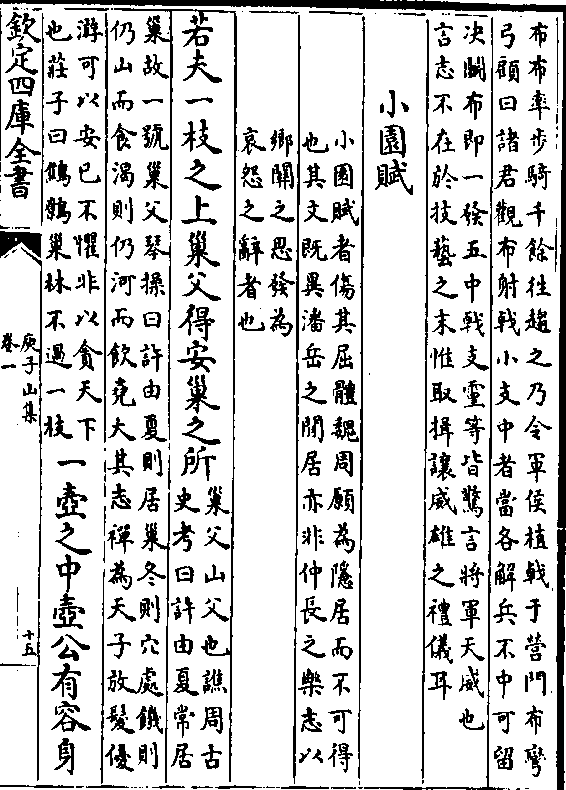 布布率步騎千餘徃趨之乃令軍侯植㦸于營門布彎
弓顧曰諸君觀布射㦸小支中者當各解兵不中可留
决鬭布即一發五中㦸支靈等皆驚言將軍天威也
言志不在於技藝之末惟取揖讓威雄之禮儀耳
小園賦
小園賦者傷其屈體魏周願為隱居而不可得
也其文既異潘岳之閒居亦非仲長之樂志以
鄉關之思發為
哀怨之辭者也
若夫一枝之上巢父得安巢之所
巢父山父也譙周古
史考曰許由夏常居
巢故一號巢父琴操曰許由夏則居巢冬則穴處饑則
仍山而食渴則仍河而飲堯大其志禪為天子放髮優
游可以安已不懼非以貪天下
也莊子曰鷦鷯巢林不過一枝
一壺之中壺公有容身
欽定四庫全書
庾子山集
卷一
十五